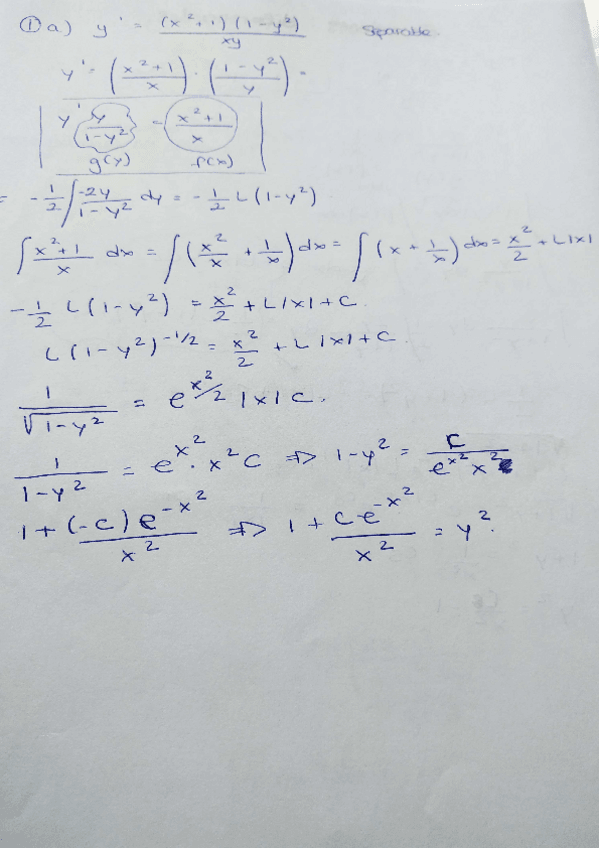 ① a) y' = (x²+1)(1-y²)/xy Separable.
y' = (x²+1/x) · (1-y²/y) =
y' y/1-y² = x²+1/x
g(y) f(x)
= -1/2 ∫ -2y/1-y² dy = -1/2 L(1-y²)
∫ x²+1/x dx = ∫(x²/x + 1/x)dx = ∫(x + 1/x)dx = x²/2 + L|x|
-1/2 L(1-y²) = x²/2 + L|x| + C.
L(1-y²)^-1/2 = x²/2 + L|x| + C.
1/√1-y² = e^x²/2 |x| C.
1/1-y² = e^x² · x² C ⇒ 1-y² = C/e^x² x²
1+(-C)e^-x²/x² ⇒ 1 + Ce^-x²/x² = y².